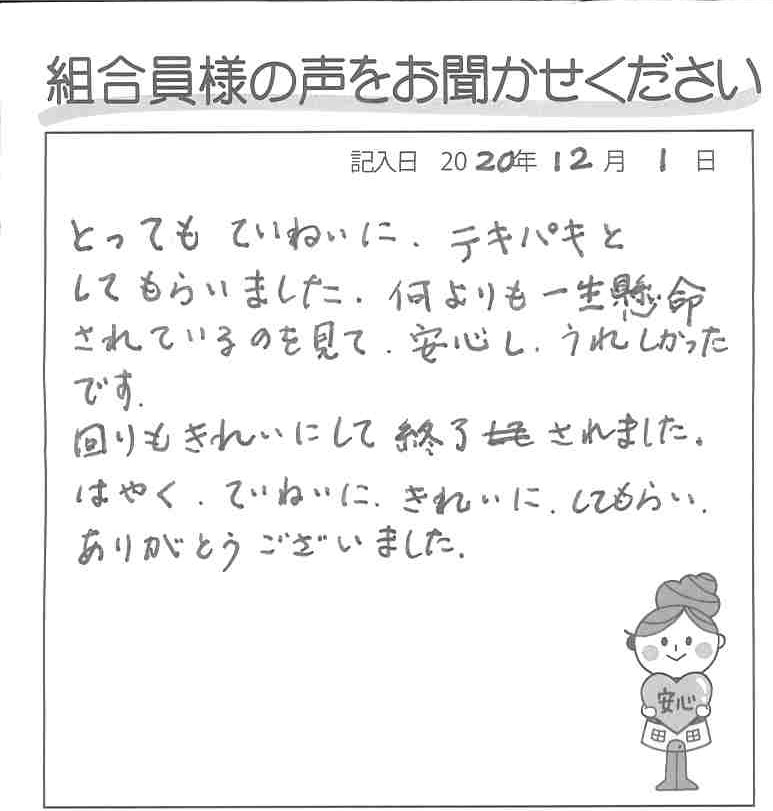 組合員様の声をお聞かせください
記入日 2020年 12月 1日
とっても ていねいに、テキパキと
してもらいました。何よりも一生懸命
されているのを見て、安心し、うれしかった
です。
回りもきれいにして 終了 されました。
はやく、ていねいに、きれいに、してもらい、
ありがとうございました。
安心